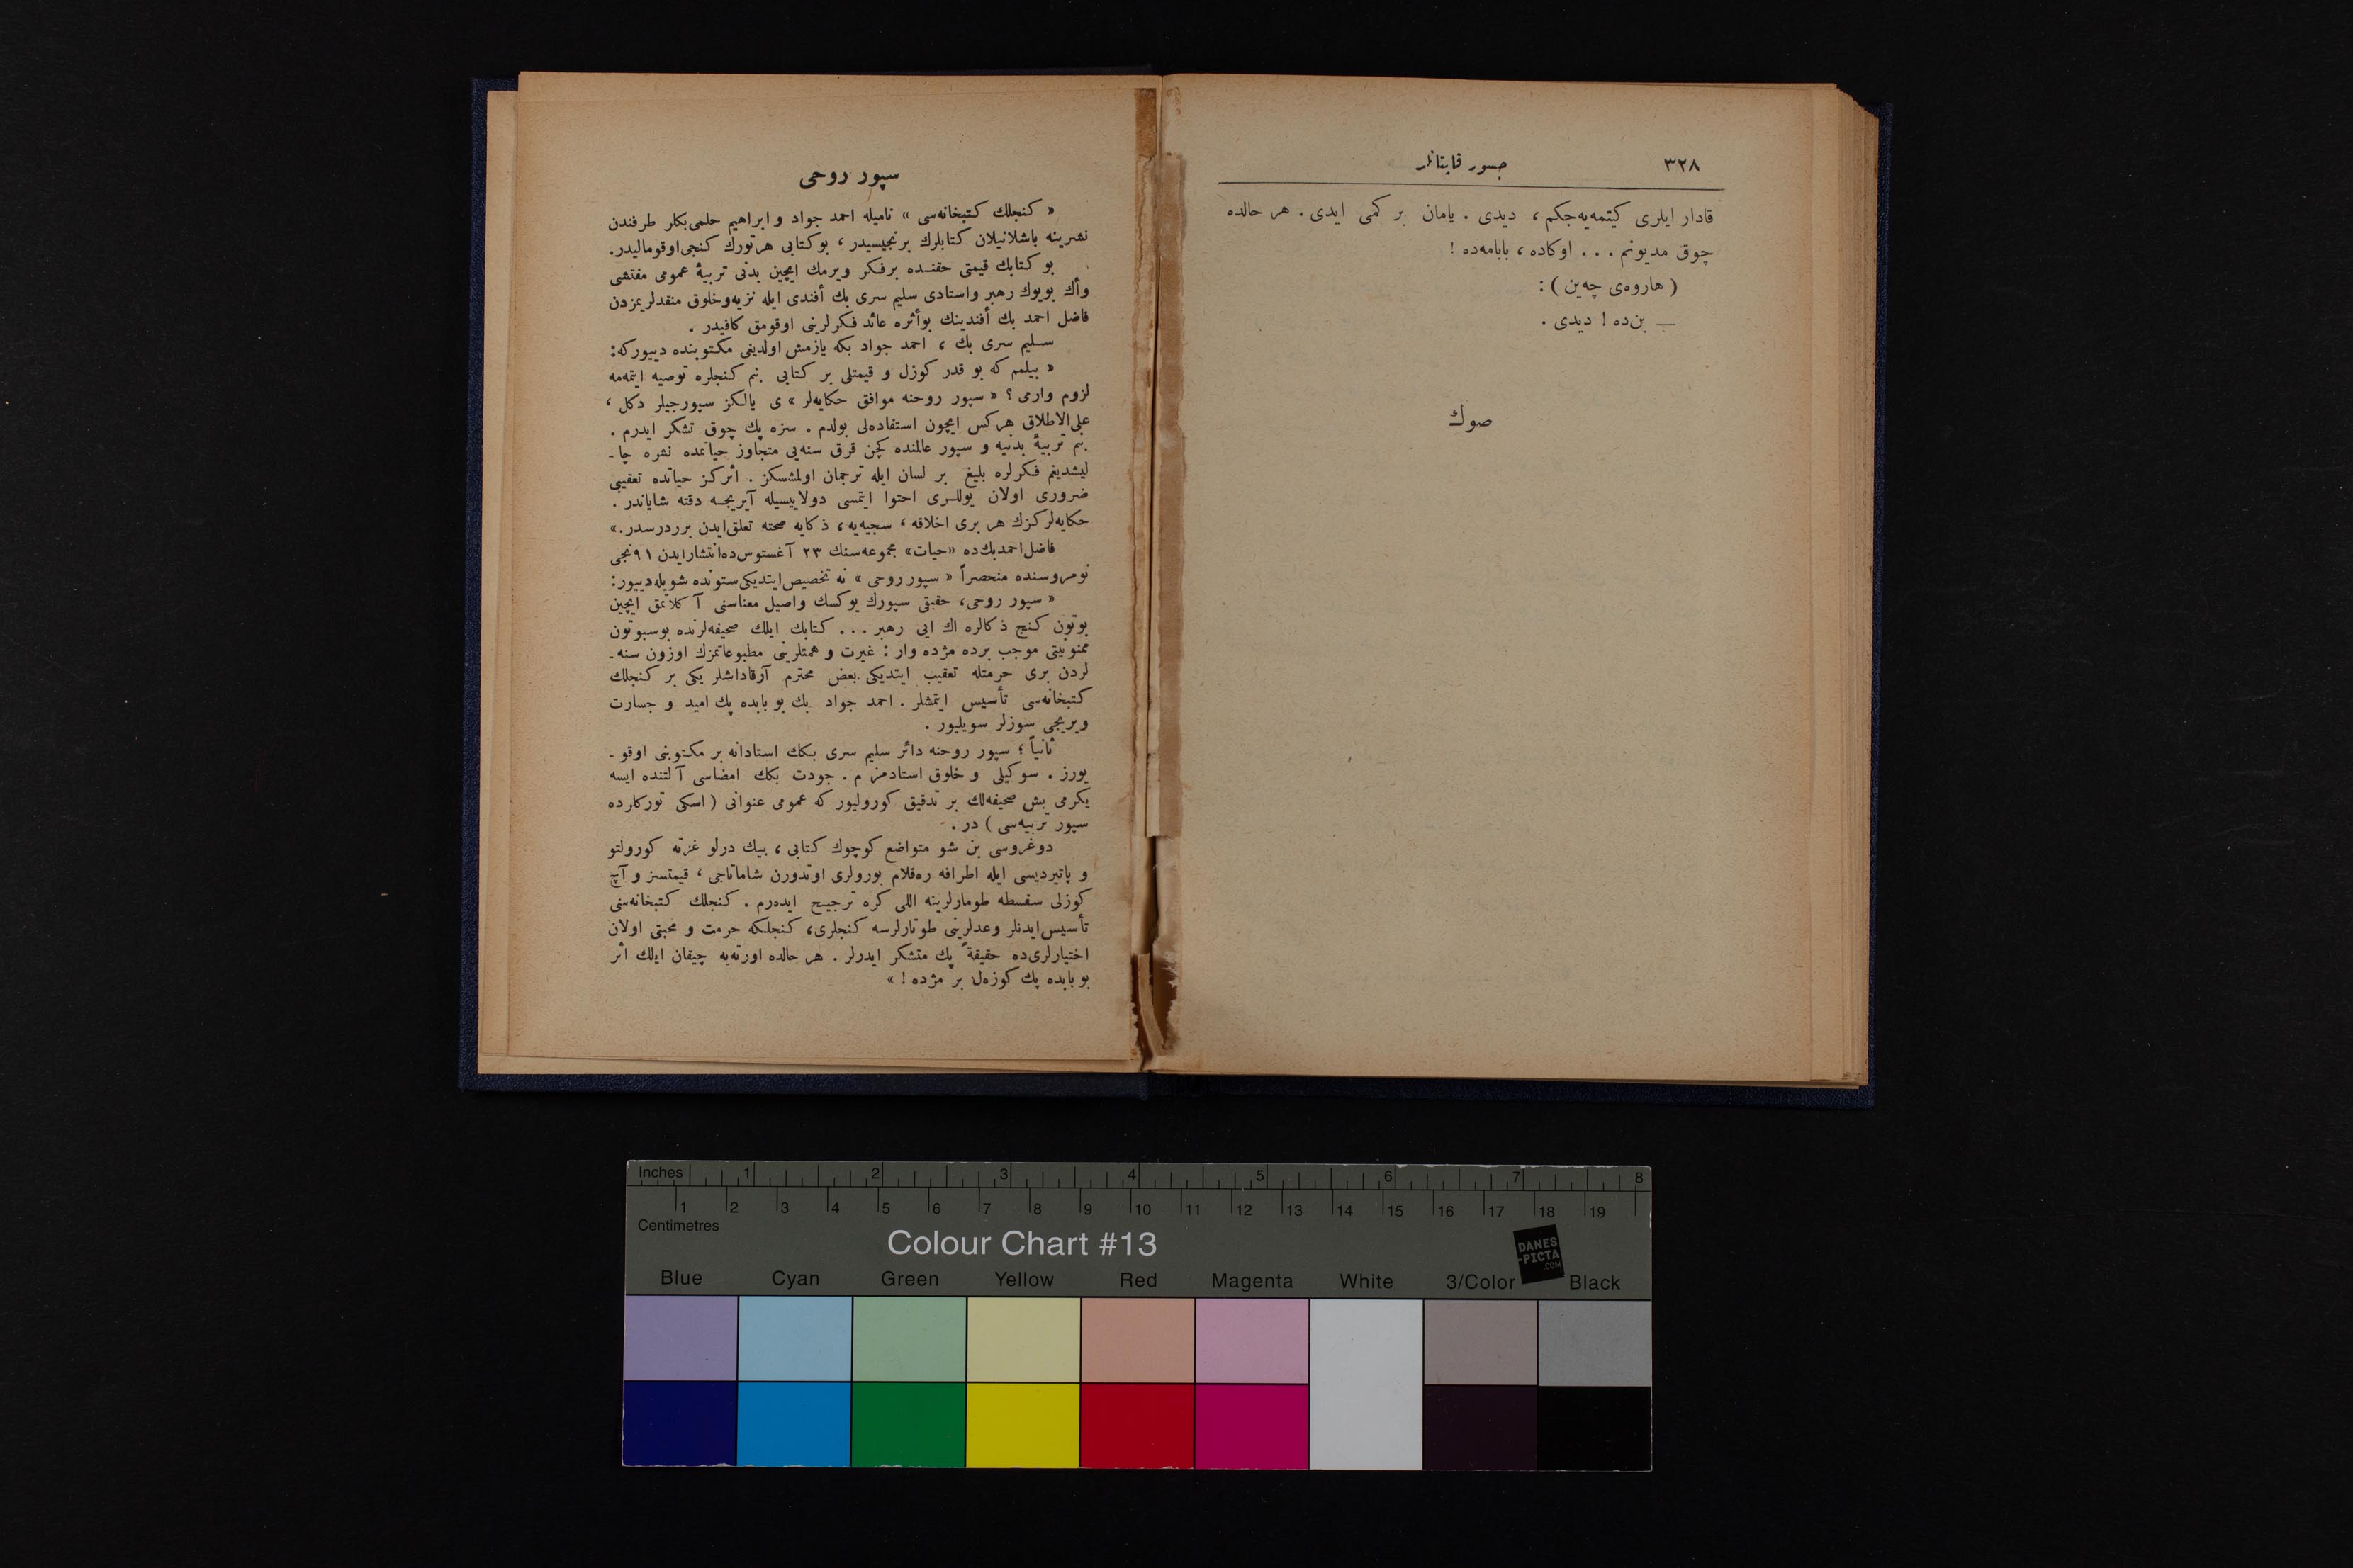 ٣٢٨
جسور قاپتانلر
قادار ایلری کیتمه‌یه‌جکم ، دیدی . یامان بر کمی ایدی . هر حالده
چوق مدیونم . . . اوکاده ، بابامه‌ده !
( هاروه‌ی چه‌ین ) :
— بن‌ده ! دیدی .
صوك
سپور روحی
« کنجلك کتبخانه‌سی » نامیله احمد جواد و ابراهیم حلمی‌بکلر طرفندن
نشرینه باشلانیلان کتابلرك برنجیسیدر ، بوکتابی هرتورك کنجی‌اوقومالیدر.
بو کتابك قیمتی حقنده برفکر ویرمك ایچین بدنی تربیهٔ عمومی مفتشی
وأك بویوك رهبر واستادی سلیم سری بك أفندی ایله نزیه‌وخلوق منقدلریمزدن
فاضل احمد بك أفندینك بوأثره عائد فکرلرینی اوقومق کافیدر .
سلیم سری بك ، احمد جواد بکه یازمش اولدیغی مکتوبنده دییورکه:
« بیلمم که بو قدر کوزل و قیمتلی بر کتابی بنم کنجلره توصیه ایتمه‌مه
لزوم وارمی ؟ « سپور روحنه موافق حکایه‌لر » ی یالکز سپورجیلر دکل ،
علی‌الاطلاق هرکس ایچون استفاده‌لی بولدم . سزه پك چوق تشکر ایدرم .
بنم تربیهٔ بدنیه و سپور عالمنده کچن قرق سنه‌یی متجاوز حیاتمده نشره چا -
لیشدیغم فکرلره بلیغ بر لسان ایله ترجمان اولمشسکز . أثرکز حیاتده تعقیبی
ضروری اولان یوللری احتوا ایتمسی دولاییسیله آیریجه دقته شایاندر .
حکایه‌لرکزك هر بری اخلاقه ، سجیه‌یه ، ذکایه صحته تعلق‌ایدن برردرسدر.»
فاضل‌احمدبك‌ده «حیات» مجموعه‌سنك ٢٣ آغستوس‌ده‌انتشارایدن ٩١نجی
نومروسنده منحصراً « سپور روحی » نه تخصیص‌ایتدیکی‌ستونده شویله‌دییور:
« سپور روحی، حقیقی سپورك یوکسك واصیل معناسنی آ کلاتمق ایچین
بوتون کنج ذکالره اك ایی رهبر . . . کتابك ایلك صحیفه‌لرنده بوسبوتون
ممنونیتی موجب برده مژده وار : غیرت و همتلرینی مطبوعاتمزك اوزون سنه -
لردن بری حرمتله تعقیب ایتدیکی بعض محترم آرقاداشلر یکی بر کنجلك
کتبخانه‌سی تأسیس ایتمشلر . احمد جواد بك بو بابده پك امید و جسارت
ویریجی سوزلر سویلیور .
ثانیاً ؛ سپور روحنه دائر سلیم سری بکك استادانه بر مکتوبنی اوقو -
یورز . سوکیلی و خلوق استادمز م . جودت بکك امضاسی آ لتنده ایسه
یکرمی بش صحیفه‌لك بر تدقیق کورولیور که عمومی عنوانی ( اسکی تورکلرده
سپور تربیه‌سی ) در .
دوغروسی بن شو متواضع کوچوك کتابی ، بیك درلو غزته کورولتو
و پاتیردیسی ایله اطرافه ره‌قلام بورولری اوتدورن شاماتاجی ، قیمتسز و آچ
کوزلی سفسطه طومارلرینه اللی کره ترجیح ایده‌رم . کنجلك کتبخانه‌سنی
تأسیس‌ایدنلر وعدلرینی طوتارلرسه کنجلری، کنجلکه حرمت و محبتی اولان
اختیارلری‌ده حقیقةً پك متشکر ایدرلر . هر حالده اورته‌یه چیقان ایلك أثر
بو بابده پك کوزه‌ل بر مژده ! »
Inches 1 2 3 4 5 6 7 8
1 2 3 4 5 6 7 8 9 10 11 12 13 14 15 16 17 18 19
Centimetres
Colour Chart #13
DANES
-PICTA
.COM
Blue Cyan Green Yellow Red Magenta White 3/Color Black